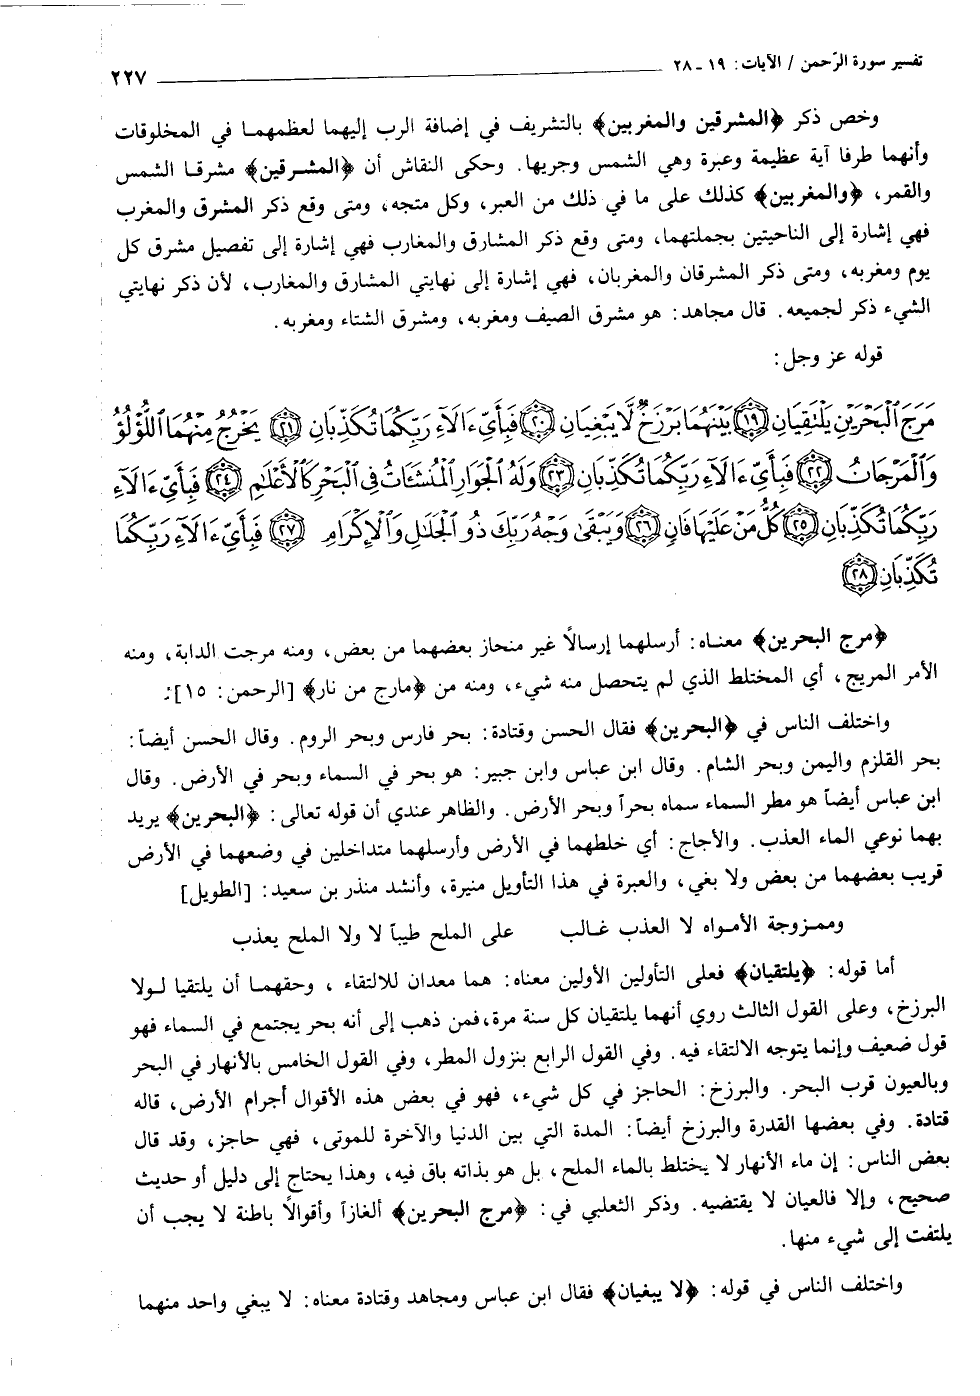 تفسير سورة الرّحمن / الآيات: ١٩ ـ ٢٨ ٢٢٧
وخص ذكر ﴿المشرقين والمغربين﴾ بالتشريف في إضافة الرب إليهما لعظمهما في المخلوقات
وأنهما طرفا آية عظيمة وعبرة وهي الشمس وجريها. وحكى النقاش أن ﴿المشرقين﴾ مشرقا الشمس
والقمر، ﴿والمغربين﴾ كذلك على ما في ذلك من العبر، وكل متجه، ومتى وقع ذكر المشرق والمغرب
فهي إشارة إلى الناحيتين بجملتهما، ومتى وقع ذكر المشارق والمغارب فهي إشارة إلى تفصيل مشرق كل
يوم ومغربه، ومتى ذكر المشرقان والمغربان، فهي إشارة إلى نهايتي المشارق والمغارب، لأن ذكر نهايتي
الشيء ذكر لجميعه. قال مجاهد: هو مشرق الصيف ومغربه، ومشرق الشتاء ومغربه.
قوله عز وجل:
مَرَجَ ٱلْبَحْرَيْنِ يَلْتَقِيَانِ ﴿١٩﴾ بَيْنَهُمَا بَرْزَخٌ لَّا يَبْغِيَانِ ﴿٢٠﴾ فَبِأَىِّ ءَالَآءِ رَبِّكُمَا تُكَذِّبَانِ ﴿٢١﴾ يَخْرُجُ مِنْهُمَا ٱللُّؤْلُؤُ
وَٱلْمَرْجَانُ ﴿٢٢﴾ فَبِأَىِّ ءَالَآءِ رَبِّكُمَا تُكَذِّبَانِ ﴿٢٣﴾ وَلَهُ ٱلْجَوَارِ ٱلْمُنشَئَاتُ فِى ٱلْبَحْرِ كَٱلْأَعْلَٰمِ ﴿٢٤﴾ فَبِأَىِّ ءَالَآءِ
رَبِّكُمَا تُكَذِّبَانِ ﴿٢٥﴾ كُلُّ مَنْ عَلَيْهَا فَانٍ ﴿٢٦﴾ وَيَبْقَىٰ وَجْهُ رَبِّكَ ذُو ٱلْجَلَٰلِ وَٱلْإِكْرَامِ ﴿٢٧﴾ فَبِأَىِّ ءَالَآءِ رَبِّكُمَا
تُكَذِّبَانِ ﴿٢٨﴾
﴿مرج البحرين﴾ معناه: أرسلهما إرسالاً غير منحاز بعضهما من بعض، ومنه مرجت الدابة، ومنه
الأمر المريج، أي المختلط الذي لم يتحصل منه شيء، ومنه من ﴿مارج من نار﴾ [الرحمن: ١٥]؛
واختلف الناس في ﴿البحرين﴾ فقال الحسن وقتادة: بحر فارس وبحر الروم. وقال الحسن أيضاً:
بحر القلزم واليمن وبحر الشام. وقال ابن عباس وابن جبير: هو بحر في السماء وبحر في الأرض. وقال
ابن عباس أيضاً هو مطر السماء سماه بحراً وبحر الأرض. والظاهر عندي أن قوله تعالى: ﴿البحرين﴾ يريد
بهما نوعي الماء العذب. والأجاج: أي خلطهما في الأرض وأرسلهما متداخلين في وضعهما في الأرض
قريب بعضهما من بعض ولا بغي، والعبرة في هذا التأويل منيرة، وأنشد منذر بن سعيد: [الطويل]
وممزوجة الأمواه لا العذب غالب على الملح طيباً لا ولا الملح يعذب
أما قوله: ﴿يلتقيان﴾ فعلى التأولين الأولين معناه: هما معدان للالتقاء، وحقهما أن يلتقيا لولا
البرزخ، وعلى القول الثالث روي أنهما يلتقيان كل سنة مرة، فمن ذهب إلى أنه بحر يجتمع في السماء فهو
قول ضعيف وإنما يتوجه الالتقاء فيه. وفي القول الرابع بنزول المطر، وفي القول الخامس بالأنهار في البحر
وبالعيون قرب البحر. والبرزخ: الحاجز في كل شيء، فهو في بعض هذه الأقوال أجرام الأرض، قاله
قتادة. وفي بعضها القدرة والبرزخ أيضاً: المدة التي بين الدنيا والآخرة للموتى، فهي حاجز، وقد قال
بعض الناس: إن ماء الأنهار لا يختلط بالماء الملح، بل هو بذاته باق فيه، وهذا يحتاج إلى دليل أو حديث
صحيح، وإلا فالعيان لا يقتضيه. وذكر الثعلبي في: ﴿مرج البحرين﴾ ألغازاً وأقوالاً باطنة لا يجب أن
يلتفت إلى شيء منها.
واختلف الناس في قوله: ﴿لا يبغيان﴾ فقال ابن عباس ومجاهد وقتادة معناه: لا يبغي واحد منهما